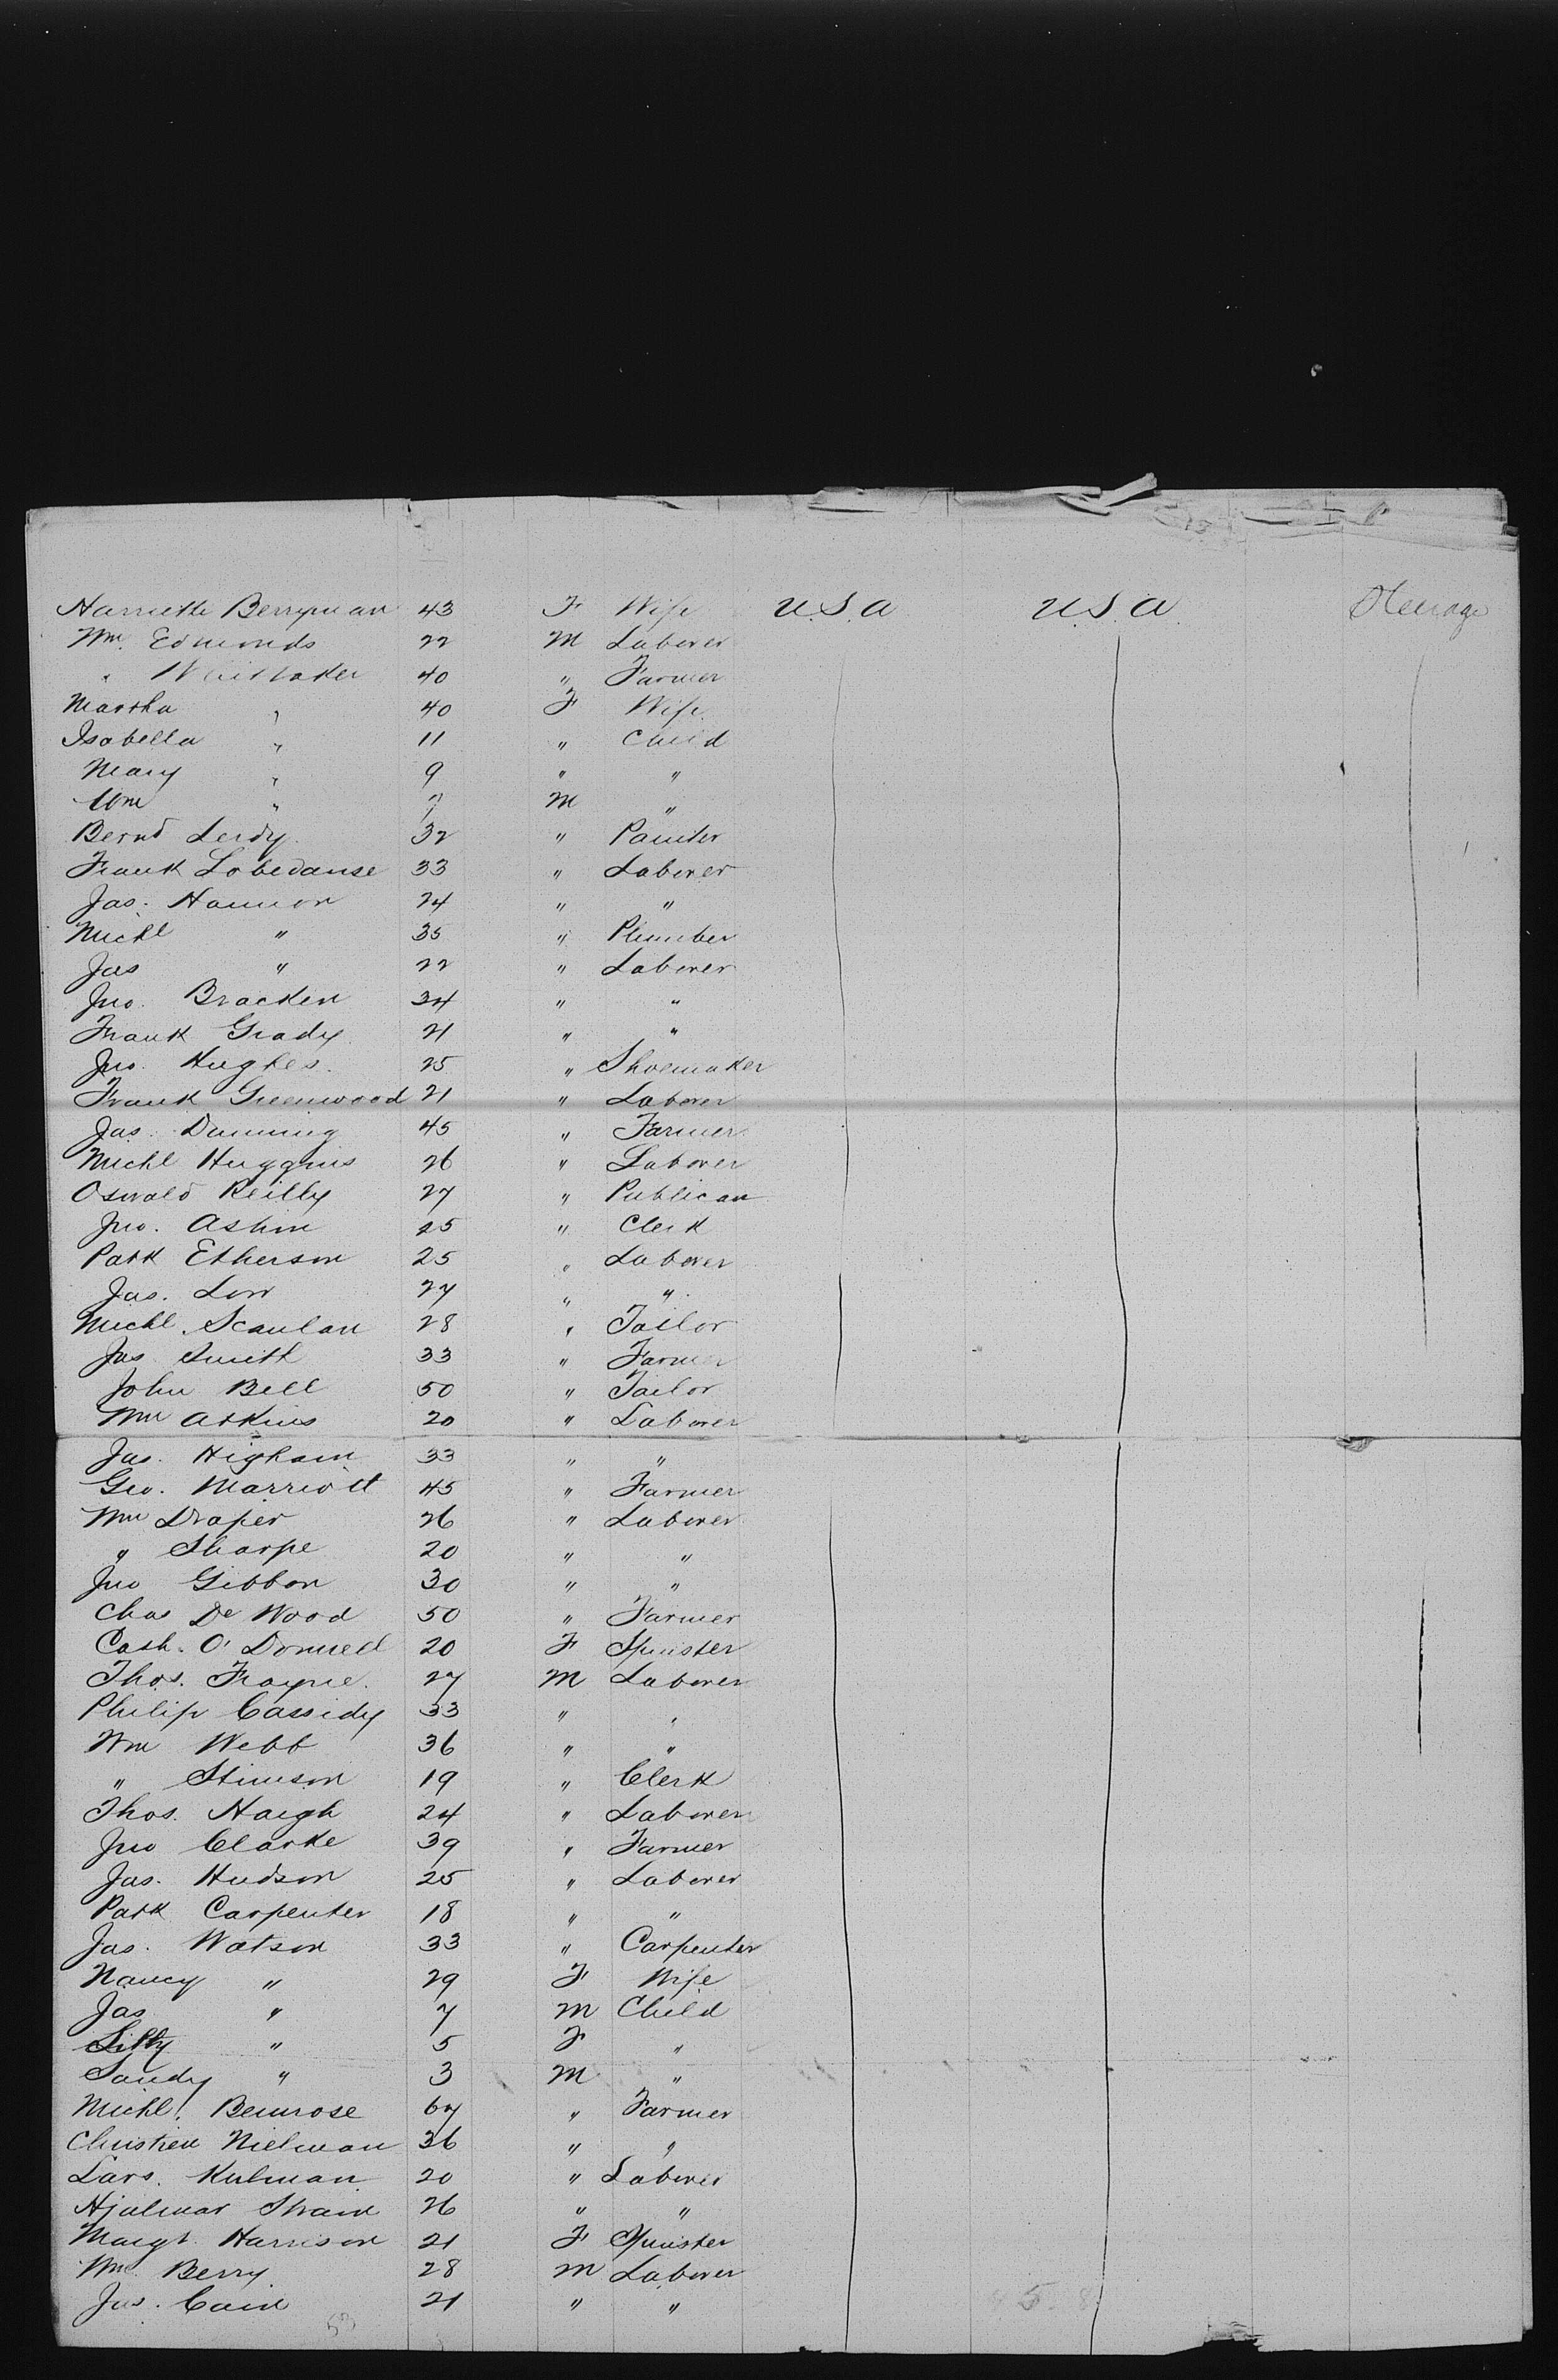 Harriette Berryman 43 F Wife U.S.A U.S.A. Steerage
Wm. Edmonds 22 M Laborer
" Whittaker 40 " Farmer
Martha " 40 F Wife
Isabella " 11 " Child
Mary " 9 " "
Wm " 7 M "
Bernd Leidy 32 " Painter
Frank Lobedanse 33 " Laborer
Jas. Hannon 24 " "
Michl " 35 " Plumber
Jas " 22 " Laborer
Jno. Bracken 34 " "
Frank Grady 21 " "
Jno. Hughes. 25 " Shoemaker
Frank Greenwood 21 " Laborer
Jas. Dunning 45 " Farmer
Michl Huggins 26 " Laborer
Oswald Reilly 27 " Publican
Jno. Ashin 25 " Clerk
Patk Etherson 25 " Laborer
Jas. Low 27 " "
Michl. Scanlan 28 " Tailor
Jas Smith 33 " Farmer
John Bell 50 " Tailor
Wm Atkins 20 " Laborer
Jas. Higham 33 " "
Geo. Marriott 45 " Farmer
Wm Draper 26 " Laborer
" Sharpe 20 " "
Jno Gibbon 30 " "
Chas De Wood 50 " Farmer
Cath. O'Donnell 20 F Spinster
Thos. Frayne. 27 M Laborer
Philip Cassidy 33 " "
Wm Webb 36 " "
" Stimson 19 " Clerk
Thos. Haigh 24 " Laborer
Jno Clarke 39 " Farmer
Jas. Hudson 25 " Laborer
Patk Carpenter 18 " "
Jas. Watson 33 " Carpenter
Nancy " 29 F Wife
Jas " 7 M Child
Lilly " 5 F "
Sandy " 3 M "
Michl. Bemrose 67 " Farmer
Christien Nielman 36 " "
Lars. Kulman 20 " Laborer
Hjalmar 26 " "
Margt. Harrison 21 F Spinster
Wm. Berry 28 M Laborer
Jas. Cain 21 " "
53